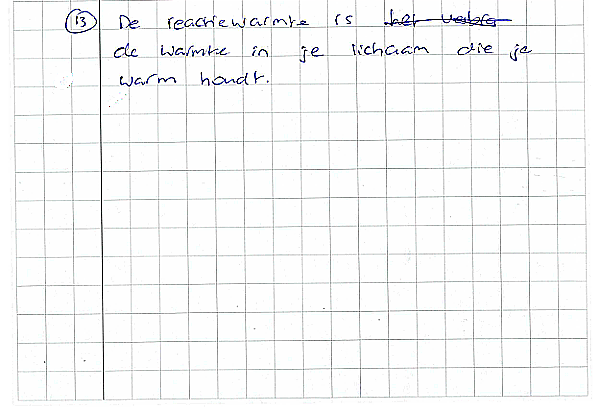 13 De reactiewarmte is
de warmte in je lichaam die je
warm houdt.